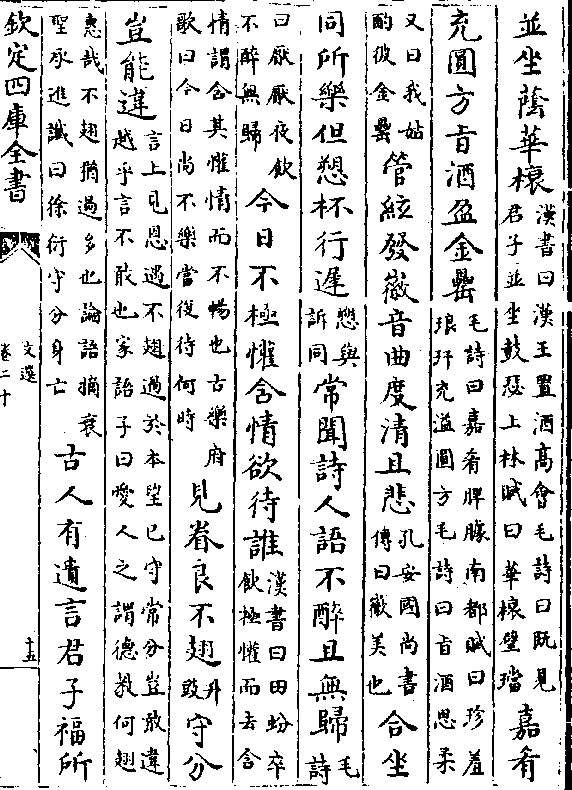 並坐蔭華榱漢書曰漢王置酒高會毛詩曰既見君子並坐鼓瑟上林賦曰華榱壁璫嘉肴
充圓方旨酒盈金罍毛詩曰嘉肴脾臄南都賦曰珍羞琅玕充溢圓方毛詩曰旨酒思柔
又曰我姑酌彼金罍管絃發徽音曲度清且悲孔安國尚書傳曰徽美也合坐
同所樂但愬杯行遲愬與訴同常聞詩人語不醉且無歸毛詩
曰厭厭夜飲不醉無歸今日不極懽含情欲待誰漢書曰田蚡卒飲極懽而去含
情謂含其懽情而不暢也古樂府歌曰今日尚不樂當復待何時見眷良不翅升豉守分
豈能違言上見恩遇不翅過於本望已守常分豈敢違越乎言不敢也家語子曰愛人之謂德教何翅
惠哉不翅猶過多也論語摘衰聖承進讖曰徐衍守分身亡古人有遺言君子福所
欽定四庫全書
文選
卷二十
十五